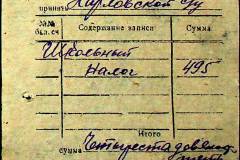 принят Карловской с/у
№№ бал. сч. Содержание записи Сумма
Школьный
налог 495
Итого
сумма Четыреста девяносто
пять